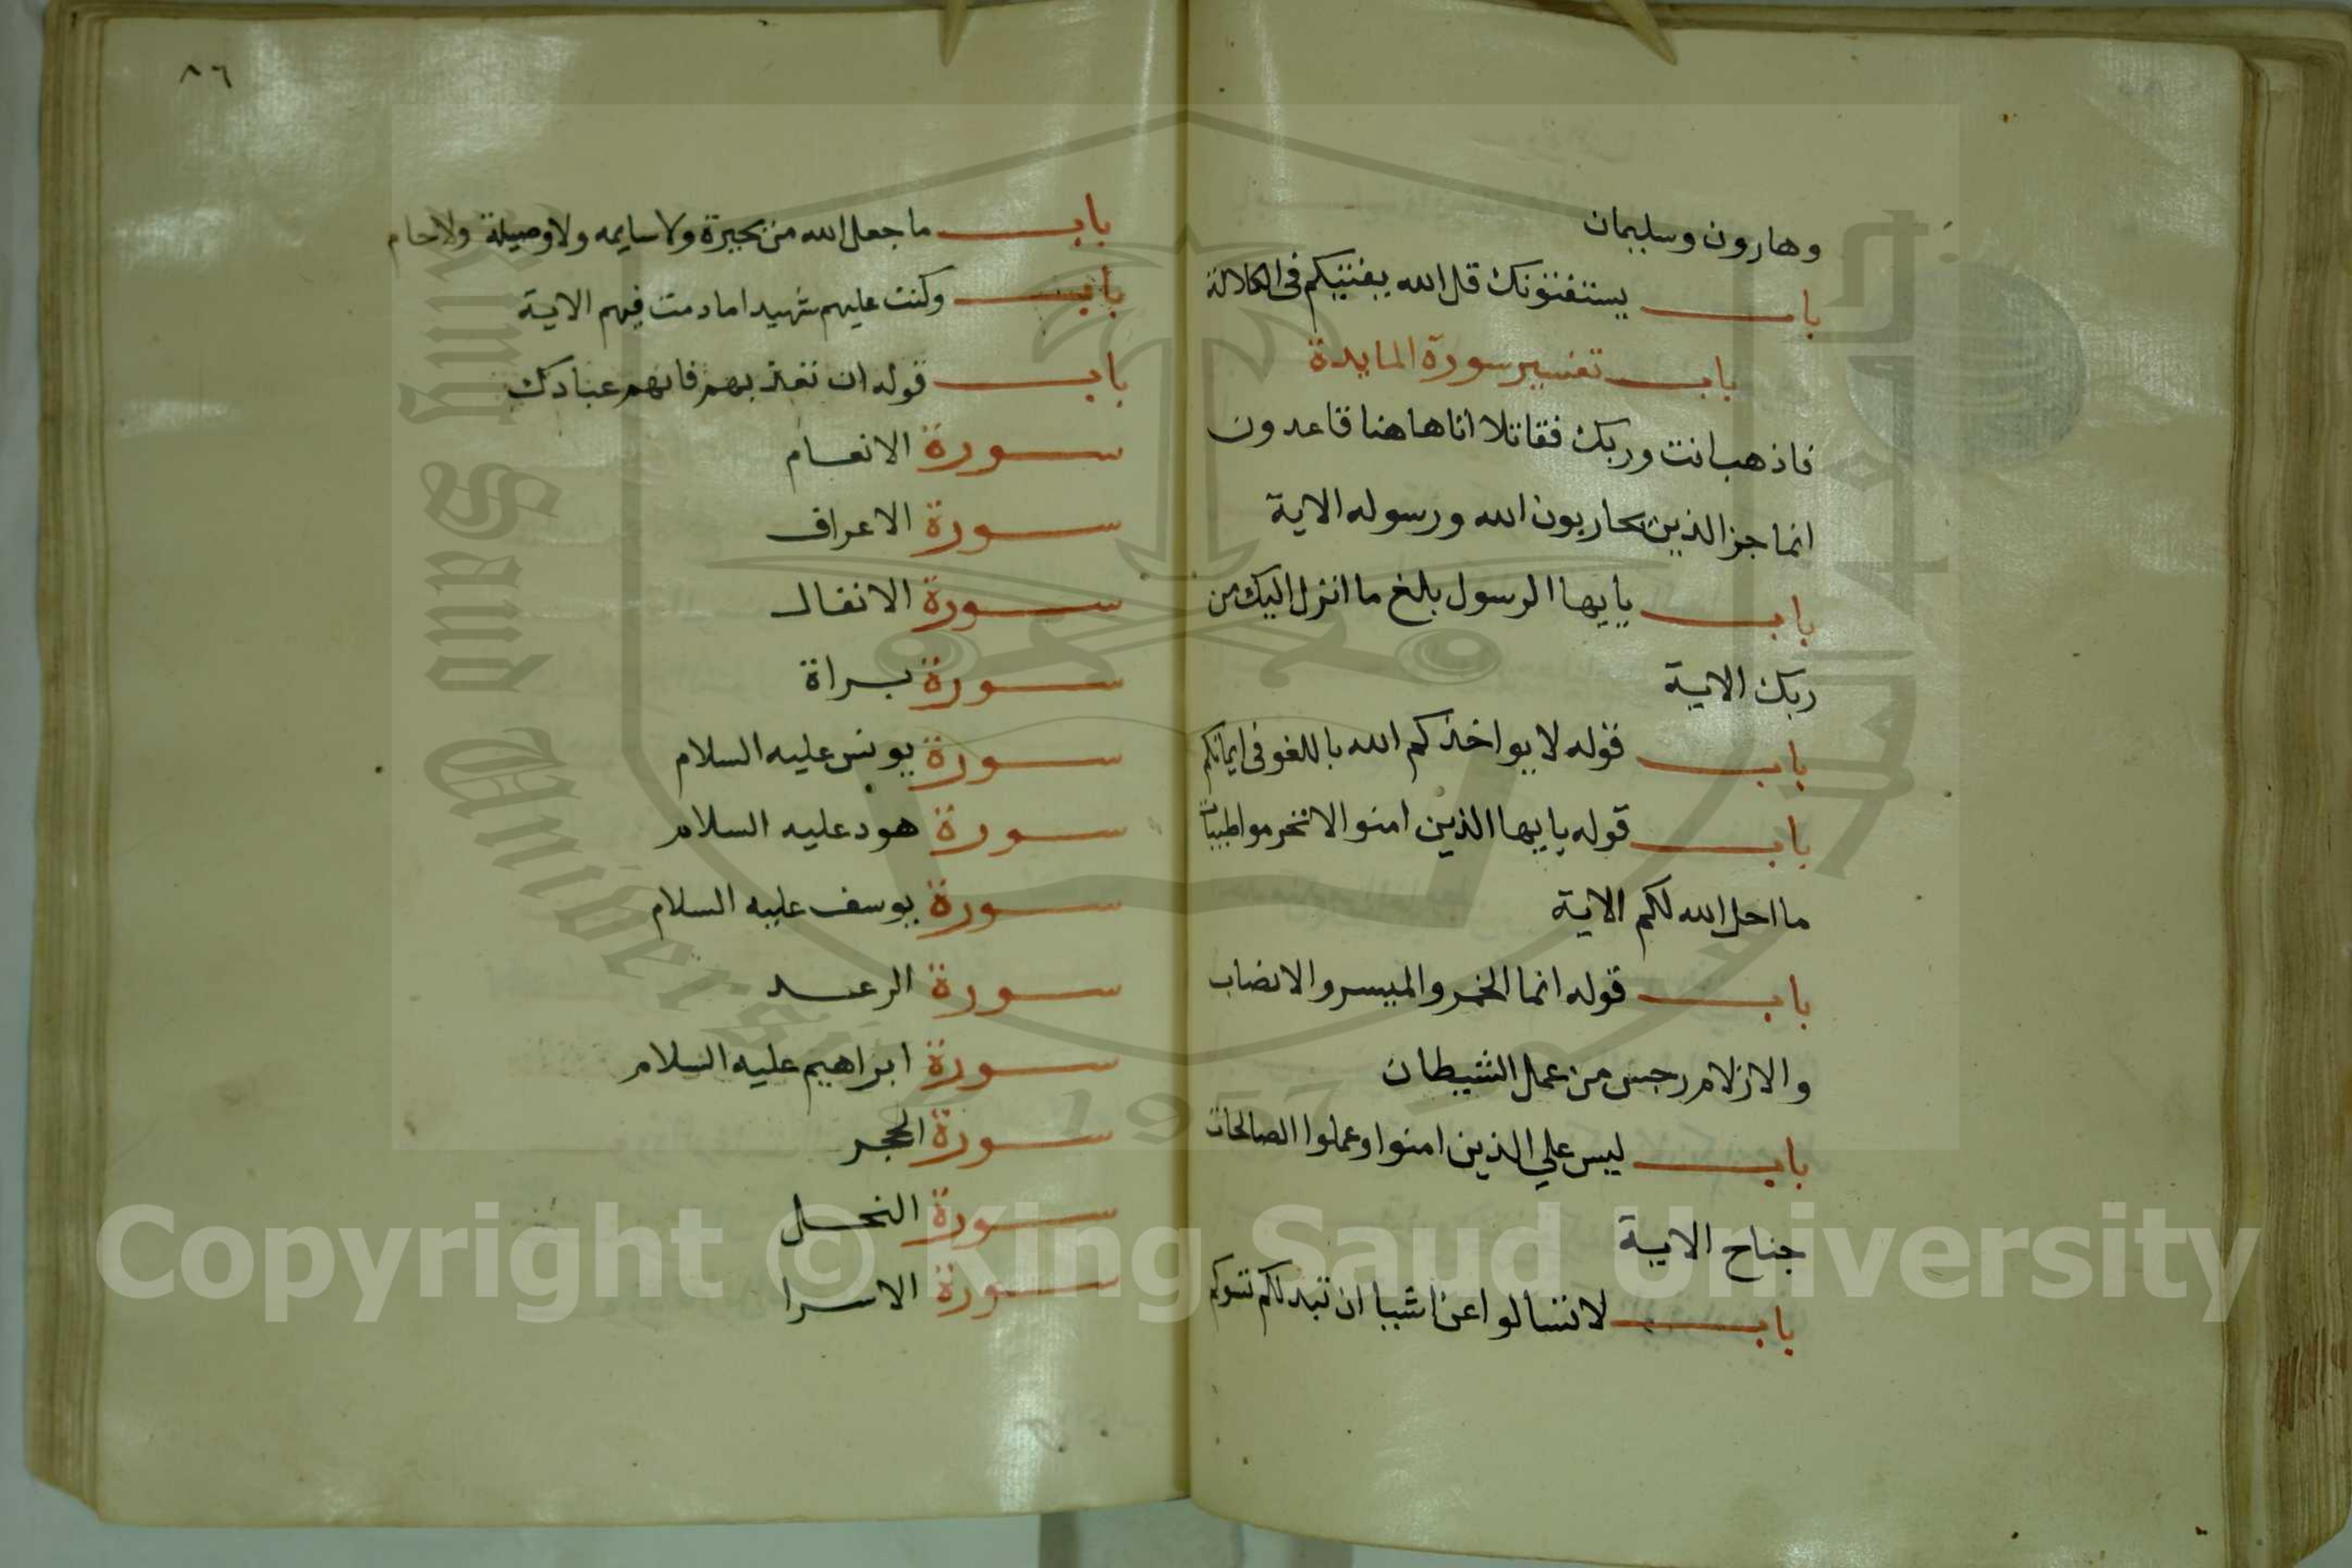 وهارون وسليمان
باب يستفتونك قل الله يفتيكم في الكلالة
باب تفسير سورة المايدة
فاذهب انت وربك فقاتلا اناهاهنا قاعدون
انما جزا الذين يحاربون الله ورسوله الاية
باب يايها الرسول بلغ ما انزل اليك من
ربك الاية
باب قوله لا يواخذكم الله باللغو في ايمانكم
باب قوله يايها الذين امنوا لا تحرموا طيبات
ما احل الله لكم الاية
باب قوله انما الخمر والميسر والانصاب
والازلام رجس من عمل الشيطان
باب ليس علي الذين امنوا وعملوا الصالحات
جناح الاية
باب لا تسالوا عن اشيا ان تبد لكم تسوكم
٨٦
باب ما جعل الله من بحيرة ولا سايمه ولا وصيلة ولا حام
باب وكنت عليهم شهيدا ما دمت فيهم الاية
باب قوله ان تعذبهم فانهم عبادك
سورة الانعام
سورة الاعراف
سورة الانفال
سورة براة
سورة يونس عليه السلام
سورة هود عليه السلام
سورة يوسف عليه السلام
سورة الرعد
سورة ابراهيم عليه السلام
سورة الحجر
سورة النحل
سورة الاسرا
King Saud University
1957
Copyright © King Saud University